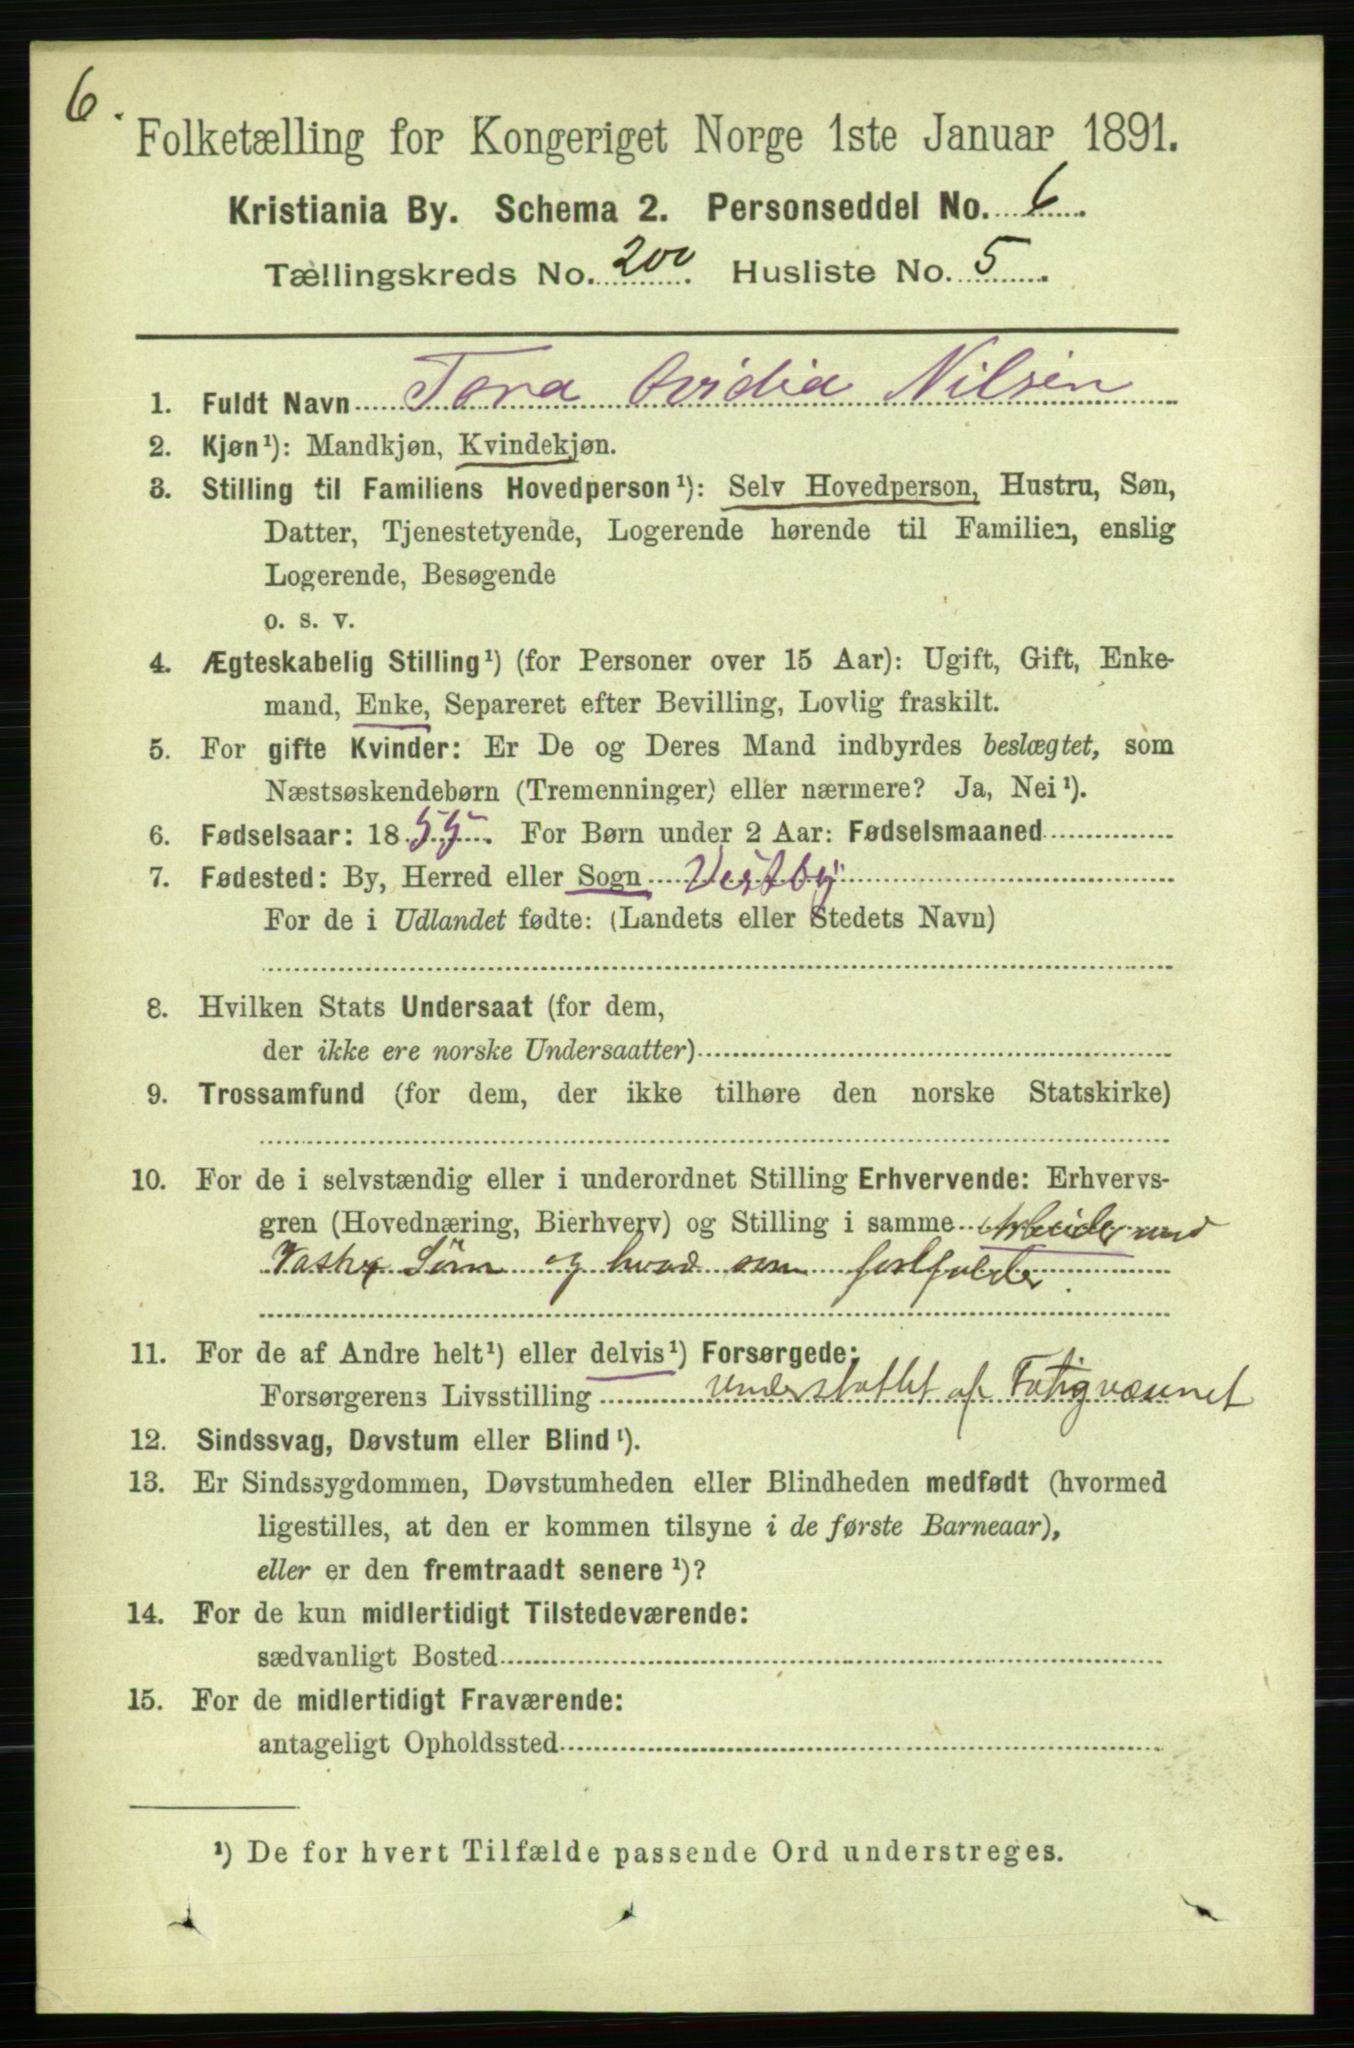 6.
Folketælling for Kongeriget Norge 1ste Januar 1891.
Kristiania By. Schema 2. Personseddel No. 6.
Tællingskreds No. 200. Husliste No. 5.
1. Fuldt Navn Tora Ovidia Nilsen
2. Kjøn¹): Mandkjøn, Kvindekjøn.
3. Stilling til Familiens Hovedperson¹): Selv Hovedperson, Hustru, Søn,
Datter, Tjenestetyende, Logerende hørende til Familien, enslig
Logerende, Besøgende
o. s. v.
4. Ægteskabelig Stilling¹) (for Personer over 15 Aar): Ugift, Gift, Enke-
mand, Enke, Separeret efter Bevilling, Lovlig fraskilt.
5. For gifte Kvinder: Er De og Deres Mand indbyrdes beslægtet, som
Næstsøskendebørn (Tremenninger) eller nærmere? Ja, Nei¹).
6. Fødselsaar: 1855. For Børn under 2 Aar: Fødselsmaaned
7. Fødested: By, Herred eller Sogn Vestby
For de i Udlandet fødte: (Landets eller Stedets Navn)
8. Hvilken Stats Undersaat (for dem,
der ikke ere norske Undersaatter)
9. Trossamfund (for dem, der ikke tilhøre den norske Statskirke)
10. For de i selvstændig eller i underordnet Stilling Erhvervende: Erhvervs-
gren (Hovednæring, Bierhverv) og Stilling i samme Arbeider med
Vask, Søm og hvad som forefalder.
11. For de af Andre helt¹) eller delvis¹) Forsørgede:
Forsørgerens Livsstilling understøttet af Fatigvæsenet
12. Sindssvag, Døvstum eller Blind¹).
13. Er Sindssygdommen, Døvstumheden eller Blindheden medfødt (hvormed
ligestilles, at den er kommen tilsyne i de første Barneaar),
eller er den fremtraadt senere¹)?
14. For de kun midlertidigt Tilstedeværende:
sædvanligt Bosted
15. For de midlertidigt Fraværende:
antageligt Opholdssted
¹) De for hvert Tilfælde passende Ord understreges.